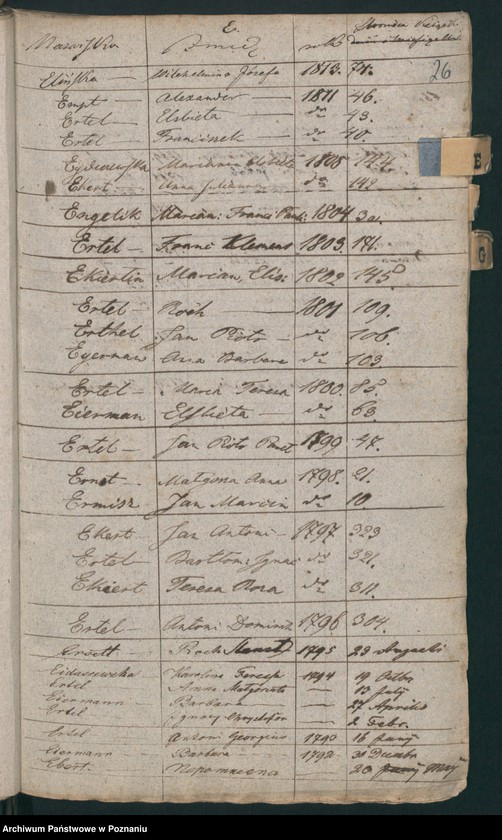 E.
Nazwiska Imię roku Stronica Księgi
26
Elińska Wilhelmina Józefa 1813. 71.
Empt Alexander 1811 46.
Ertel Elsbieta do 43.
Ertel Franciszek do 40.
1805 174.
Ekert Anna Julianna do 142
Engelik Marcian: Franc: Paul: 1804 30.
Ertel Franc Klemens 1803. 181.
Ekiertin Marian, Elis: 1802 145
Ertel Roch 1801 109.
Erthel Jan Piotr do 106.
Eyerman Ana Barbara do 103.
Ertel Maria Teresa 1800. 85.
Eierman Elsbieta do 63.
Ertel Jan Piotr 1799 47.
Ernst Małgorza Anna 1798. 21.
Ermisz Jan Marcin do 10
Ekert Jan Antoni 1797 323
Ertel Bartłom: Ignac do 321.
Ekiert Teresa Rosa do 311.
Ertel Antoni Dominik 1796 304.
Roch 1795 23 Augusti
Eidaszewska Karolina Teresa 1794 19 Octbr
Ertel Anna Małgorzata — 13 July
Eiermann Barbara — 27 Aprilis
Ertel Ignacy Chrysztofor — 2 Febr.
Ertel Antoni Georgius 1793 16 Juny
Eiermann Barbara 1792 30 Decmbr
Ebert. Nepomucena — 20 May
E
G
Archiwum Państwowe w Poznaniu